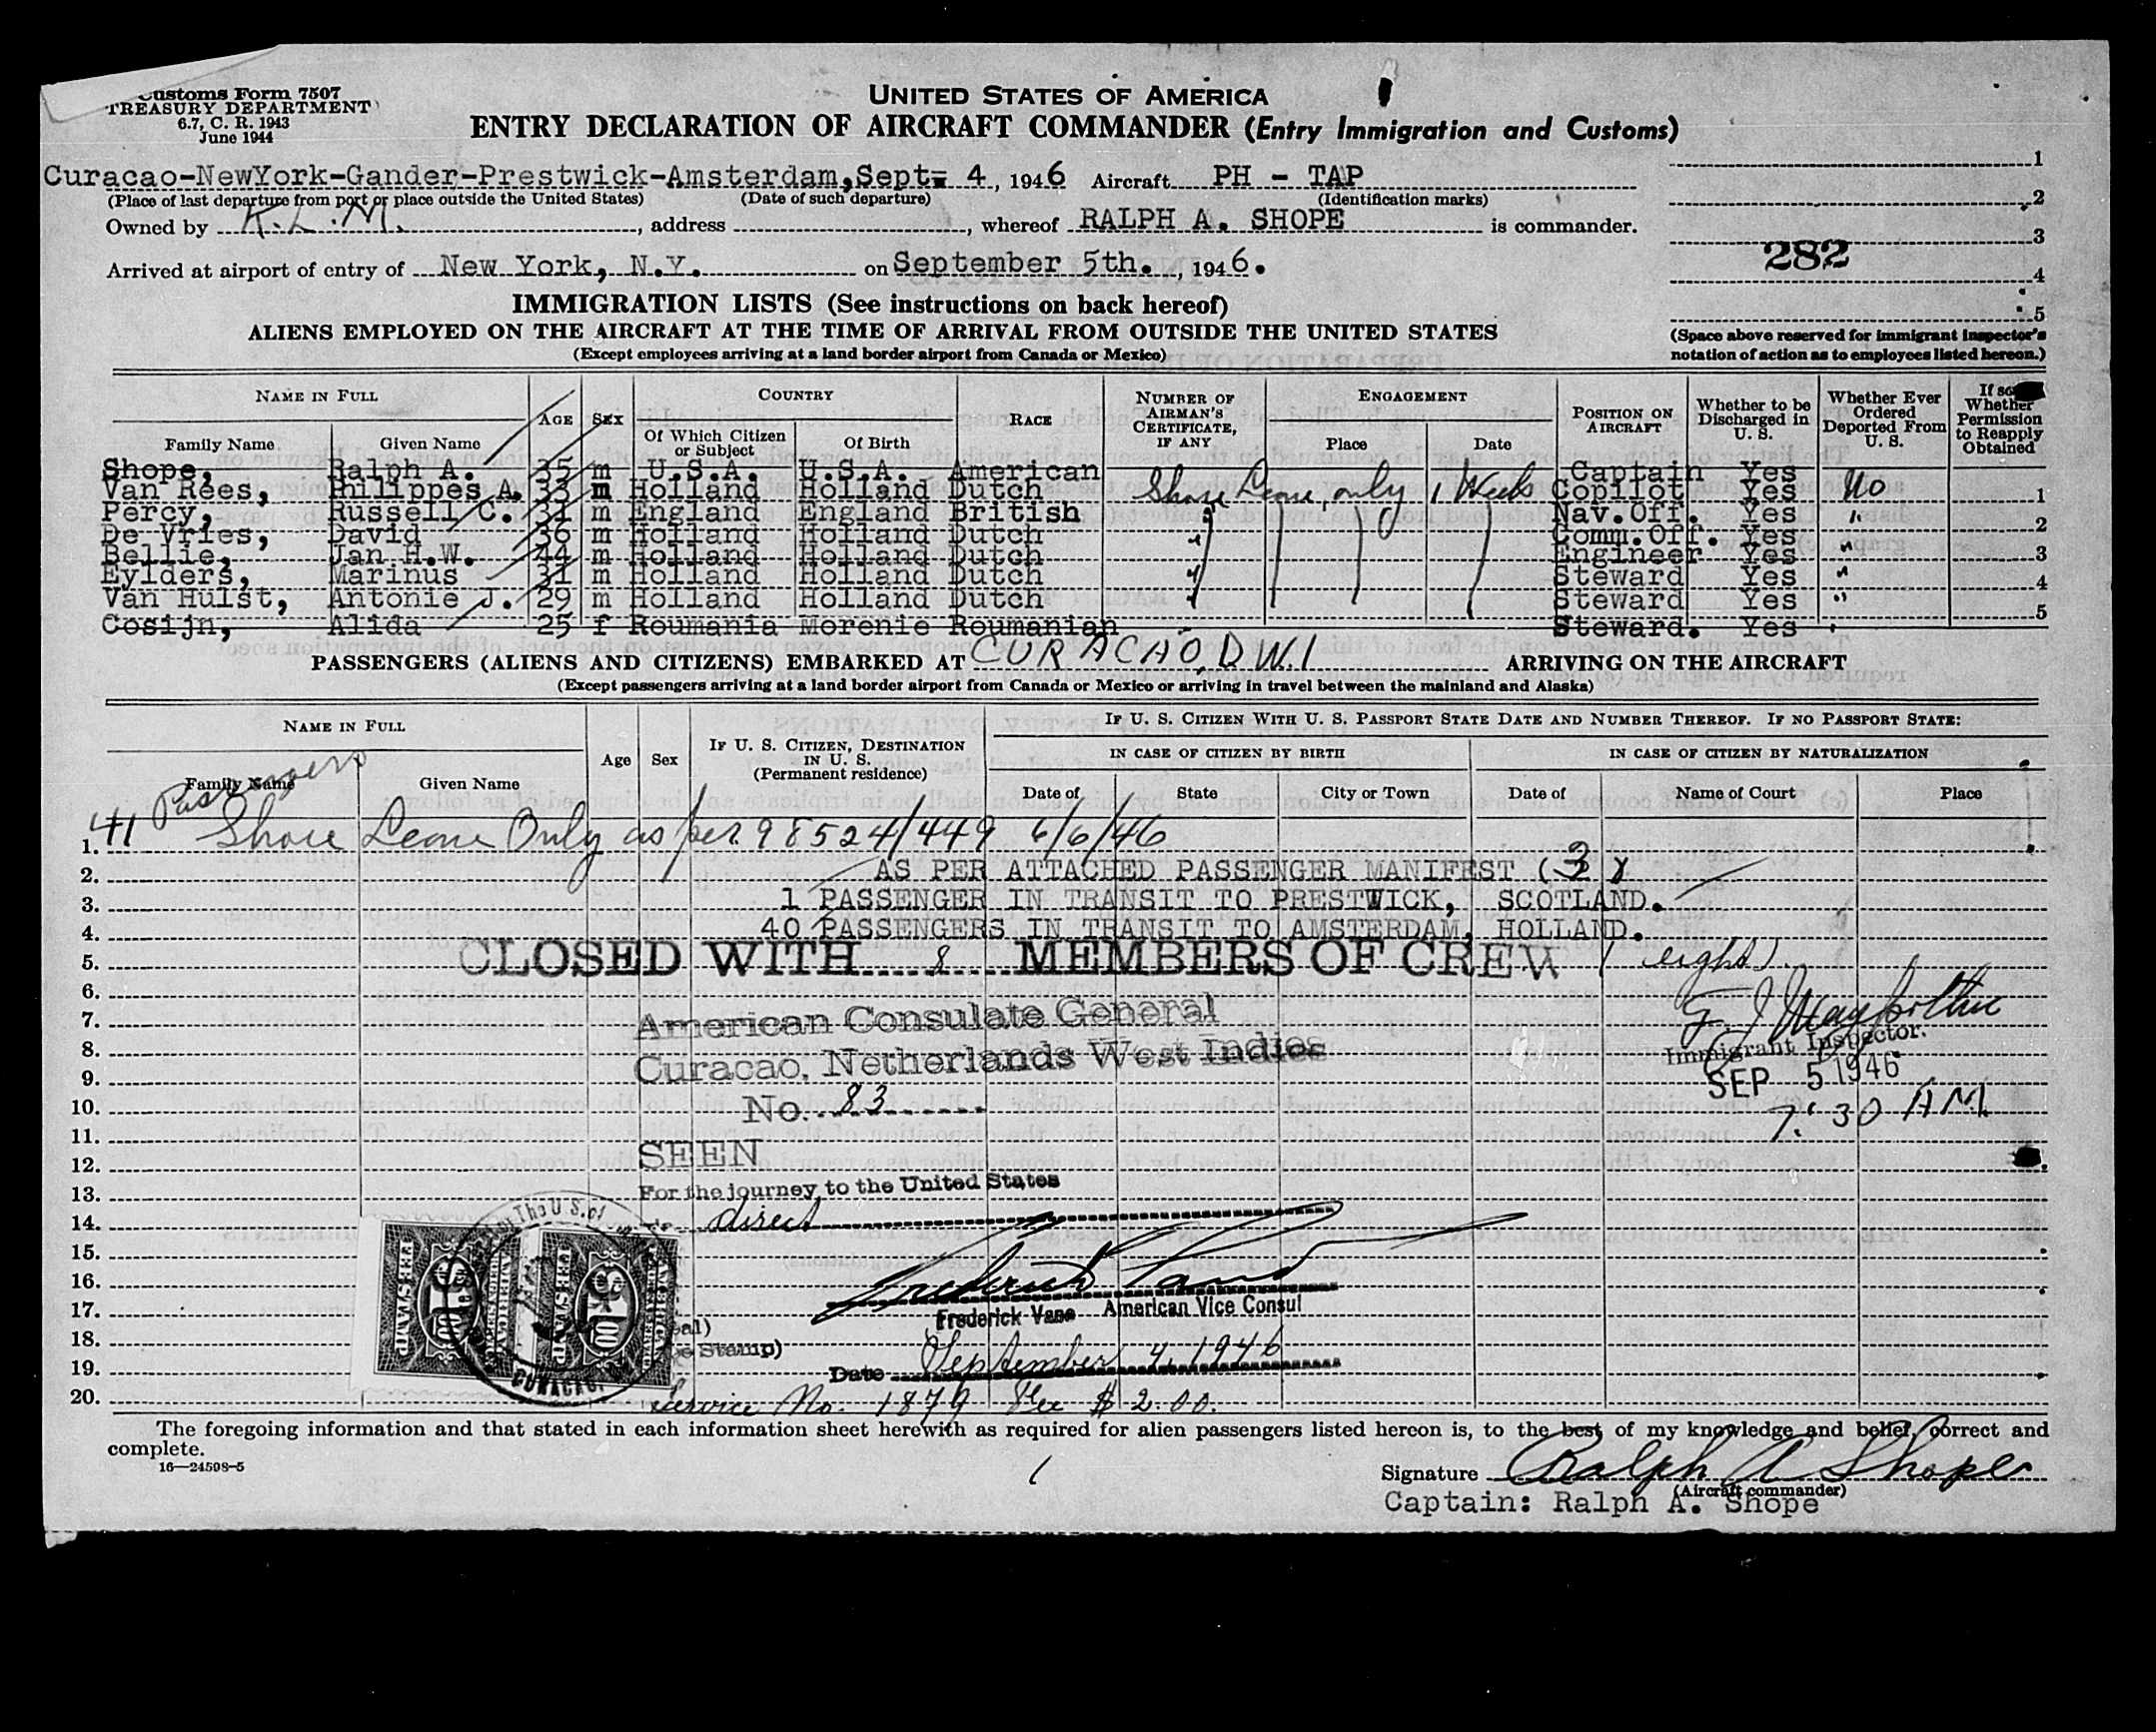 Customs Form 7507
TREASURY DEPARTMENT
6.7, C. R. 1943
June 1944
UNITED STATES OF AMERICA
ENTRY DECLARATION OF AIRCRAFT COMMANDER (Entry Immigration and Customs)
Curacao-NewYork-Gander-Prestwick-Amsterdam, Sept. 4, 1946 Aircraft PH - TAP
(Place of last departure from port or place outside the United States) (Date of such departure) (Identification marks)
Owned by K.L.M., address , whereof RALPH A. SHOPE is commander.
Arrived at airport of entry of New York, N.Y. on September 5th., 1946.
1
2
3
282
4
5
(Space above reserved for immigrant inspector's notation of action as to employees listed hereon.)
IMMIGRATION LISTS (See instructions on back hereof)
ALIENS EMPLOYED ON THE AIRCRAFT AT THE TIME OF ARRIVAL FROM OUTSIDE THE UNITED STATES
(Except employees arriving at a land border airport from Canada or Mexico)
NAME IN FULL AGE SEX COUNTRY RACE NUMBER OF AIRMAN'S CERTIFICATE, IF ANY ENGAGEMENT POSITION ON AIRCRAFT Whether to be Discharged in U. S. Whether Ever Ordered Deported From U. S. If so Whether Permission to Reapply Obtained
Family Name Given Name Of Which Citizen or Subject Of Birth Place Date
Shope, Ralph A. 35 m U.S.A. U.S.A. American Captain Yes
Van Rees, Philippes A. 33 m Holland Holland Dutch Shore Leave only 1 Week Copilot Yes No 1
Percy, Russell C. 31 m England England British Nav.Off. Yes " 2
De Vries, David 36 m Holland Holland Dutch " Comm.Off. Yes
Bellie, Jan H.W. 44 m Holland Holland Dutch Engineer Yes " 3
Eylders, Marinus 31 m Holland Holland Dutch " Steward Yes " 4
Van Hulst, Antonie J. 29 m Holland Holland Dutch " Steward Yes " 5
Cosijn, Alida 25 f Roumania Morenie Roumanian Steward. Yes
PASSENGERS (ALIENS AND CITIZENS) EMBARKED AT CURACAO, D.W.I ARRIVING ON THE AIRCRAFT
(Except passengers arriving at a land border airport from Canada or Mexico or arriving in travel between the mainland and Alaska)
NAME IN FULL Age Sex IF U. S. CITIZEN, DESTINATION IN U. S. (Permanent residence) IF U. S. CITIZEN WITH U. S. PASSPORT STATE DATE AND NUMBER THEREOF. IF NO PASSPORT STATE:
IN CASE OF CITIZEN BY BIRTH IN CASE OF CITIZEN BY NATURALIZATION
Family Name Given Name Date of State City or Town Date of Name of Court Place
Passengers
1. 41 Shore Leave Only as per 98524/449 6/6/46
2. AS PER ATTACHED PASSENGER MANIFEST (3)
3. 1 PASSENGER IN TRANSIT TO PRESTWICK, SCOTLAND.
4. 40 PASSENGERS IN TRANSIT TO AMSTERDAM, HOLLAND.
5. CLOSED WITH 8 MEMBERS OF CREW (eight)
6.
7. American Consulate General
8. Curacao, Netherlands West Indies Immigrant Inspector.
9. SEP 5 1946
10. No. 83 7:30 AM
11.
12. SEEN
13. For the journey to the United States
14. direct
15.
16.
17. Frederick Vane American Vice Consul
18.
19. Date September 4, 1946
20. Service No. 1879 Fee $2.00.
The foregoing information and that stated in each information sheet herewith as required for alien passengers listed hereon is, to the best of my knowledge and belief, correct and
complete.
16—24598-5
Signature Ralph A Shope
(Aircraft commander)
Captain: Ralph A. Shope